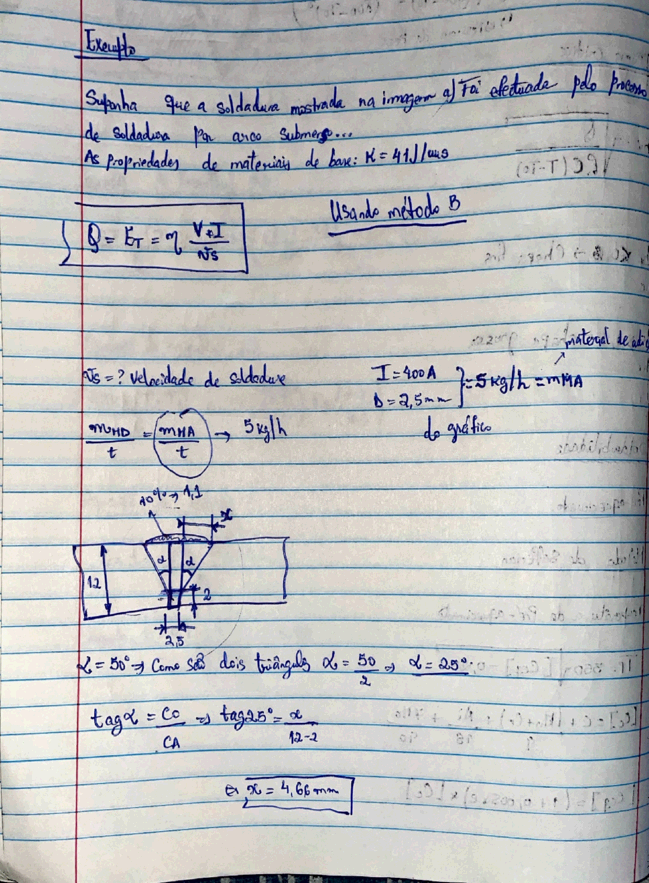 Exemplo
Suponha que a soldadura mostrada na imagem a) Foi efectuada pelo processo
de soldadura por arco submerso...
As propriedades de materiais de base: K = 41J/mms
Usando método B
Q = ET = η V*I / Vs
material de adi
Vs = ? velocidade de soldadura
I = 400A
D = 2,5mm
= 5 kg/h = mMA
do gráfico
mMD / t = mMA / t → 5 kg/h
10% → 1,1
x
12
α α
2
2,5
α = 50° ⇒ Como são dois triângulos α = 50/2 ⇒ α = 25°
tagα = CO/CA ⇒ tag25° = x/12-2
x = 4,66 mm